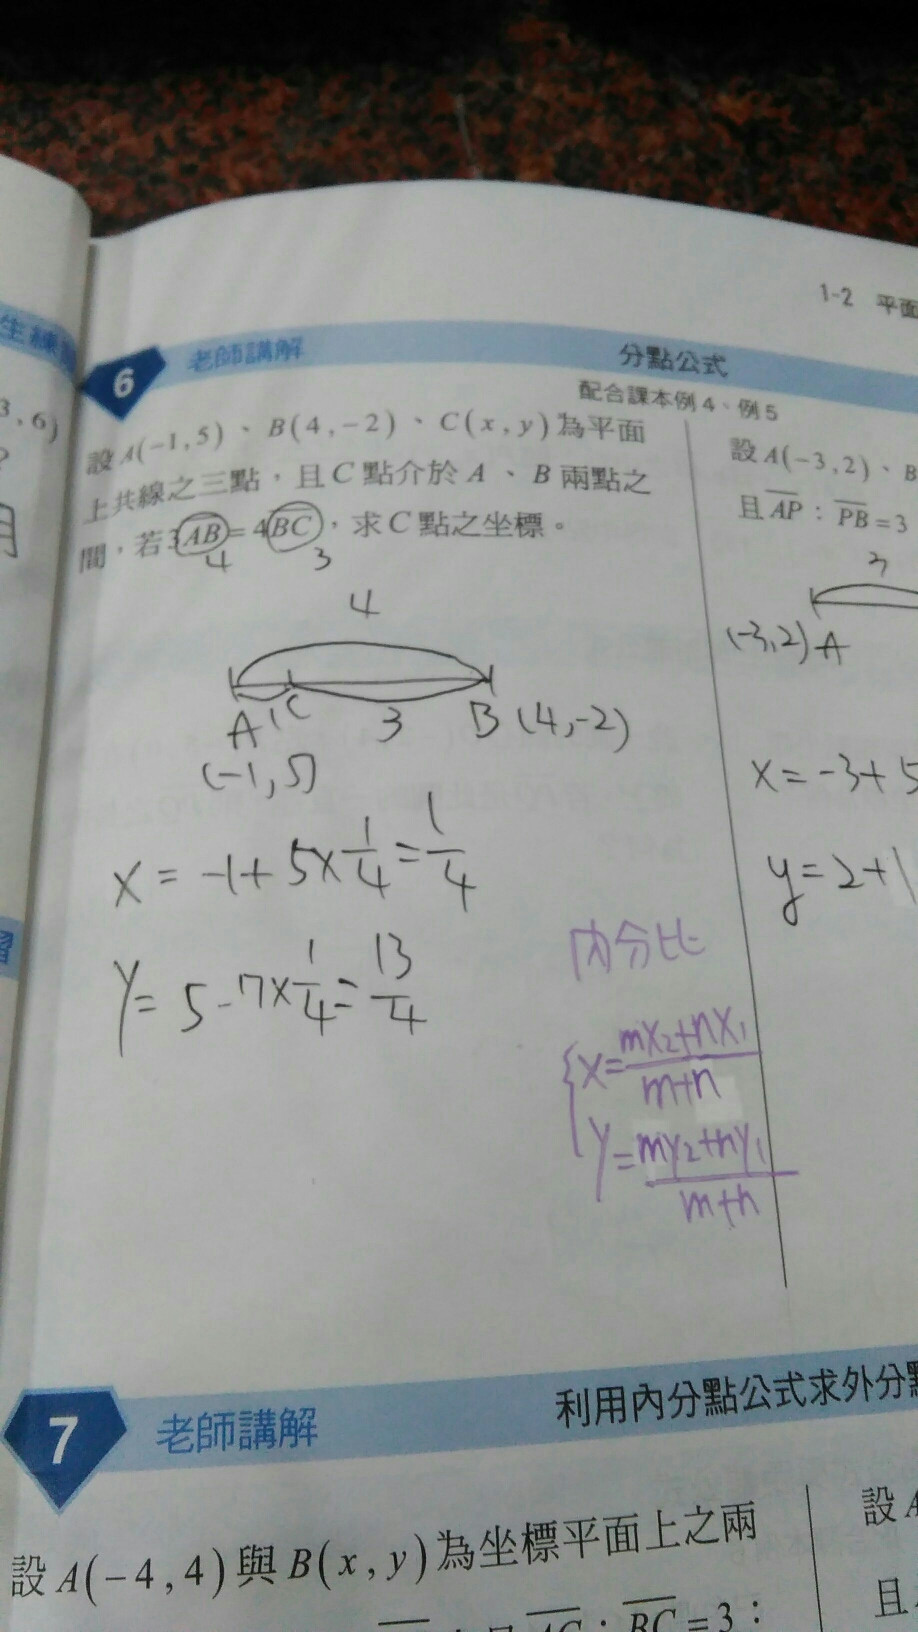 1-2 平面
生練
3,6)
?
6 老師講解 分點公式
配合課本例4、例5
設A(-1,5)、B(4,-2)、C(x,y)為平面
上共線之三點,且C點介於A、B兩點之
間,若3AB=4BC,求C點之坐標。
4 3
4
A 1 C 3 B (4,-2)
(-1,5)
x = -1+5×1/4=1/4
y= 5-7×1/4=13/4
內分比
{x=mx₂+nx₁/m+n
y=my₂+ny₁/m+n
設A(-3,2)、B
且AP:PB=3
(-3,2) A
x=-3+5
y=2+
習
7 老師講解 利用內分點公式求外分點
設A(-4,4)與B(x,y)為坐標平面上之兩
AC:BC=3:
設A
且